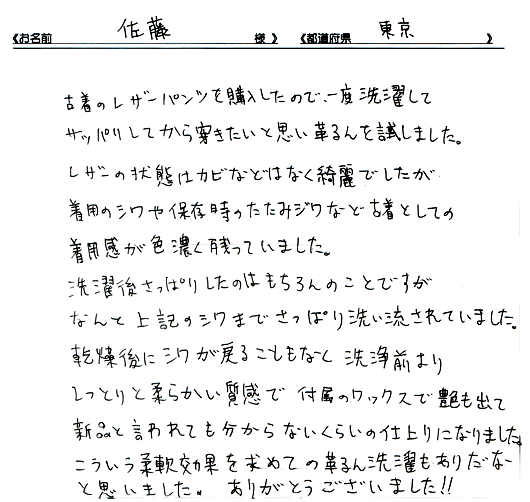 《お名前 佐藤 様》 《都道府県 東京 》
古着のレザーパンツを購入したので、一度洗濯して
サッパリしてから穿きたいと思い革るんを試しました。
レザーの状態はカビなどはなく綺麗でしたが
着用のシワや保存時のたたみジワなど古着としての
着用感が色濃く残っていました。
洗濯後さっぱりしたのはもちろんのことですが
なんと上記のシワまでさっぱり洗い流されていました。
乾燥後にシワが戻ることもなく洗浄前より
しっとりと柔らかい質感で付属のワックスで艶も出て
新品と言われても分からないくらいの仕上りになりました
こういう柔軟効果を求めての革るん洗濯もありだな〜
と思いました。ありがとうございました!!